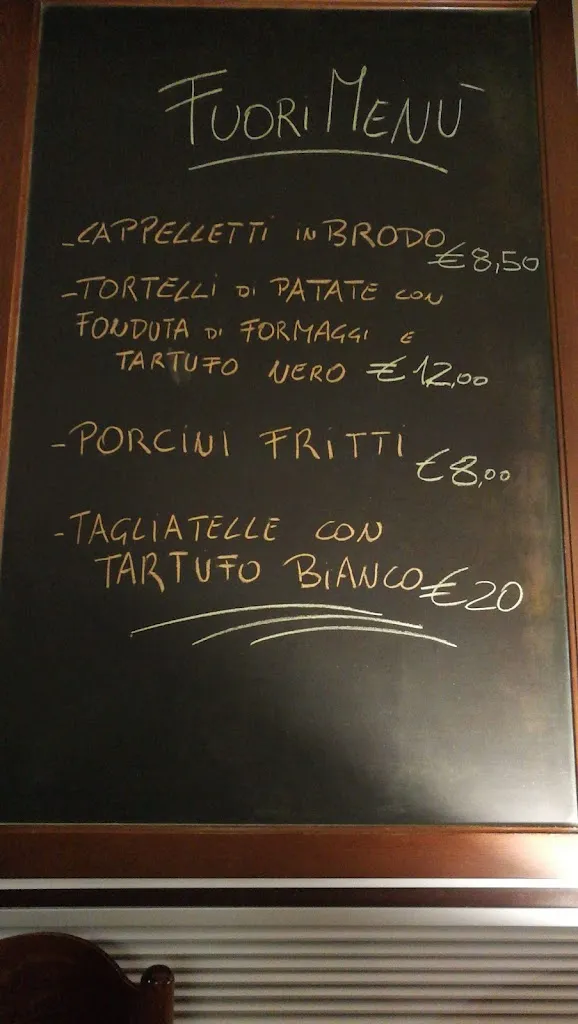 FUORI MENÙ
- CAPPELLETTI IN BRODO €8,50
- TORTELLI DI PATATE CON
FONDUTA DI FORMAGGI E
TARTUFO NERO €12,00
- PORCINI FRITTI €8,00
- TAGLIATELLE CON
TARTUFO BIANCO €20